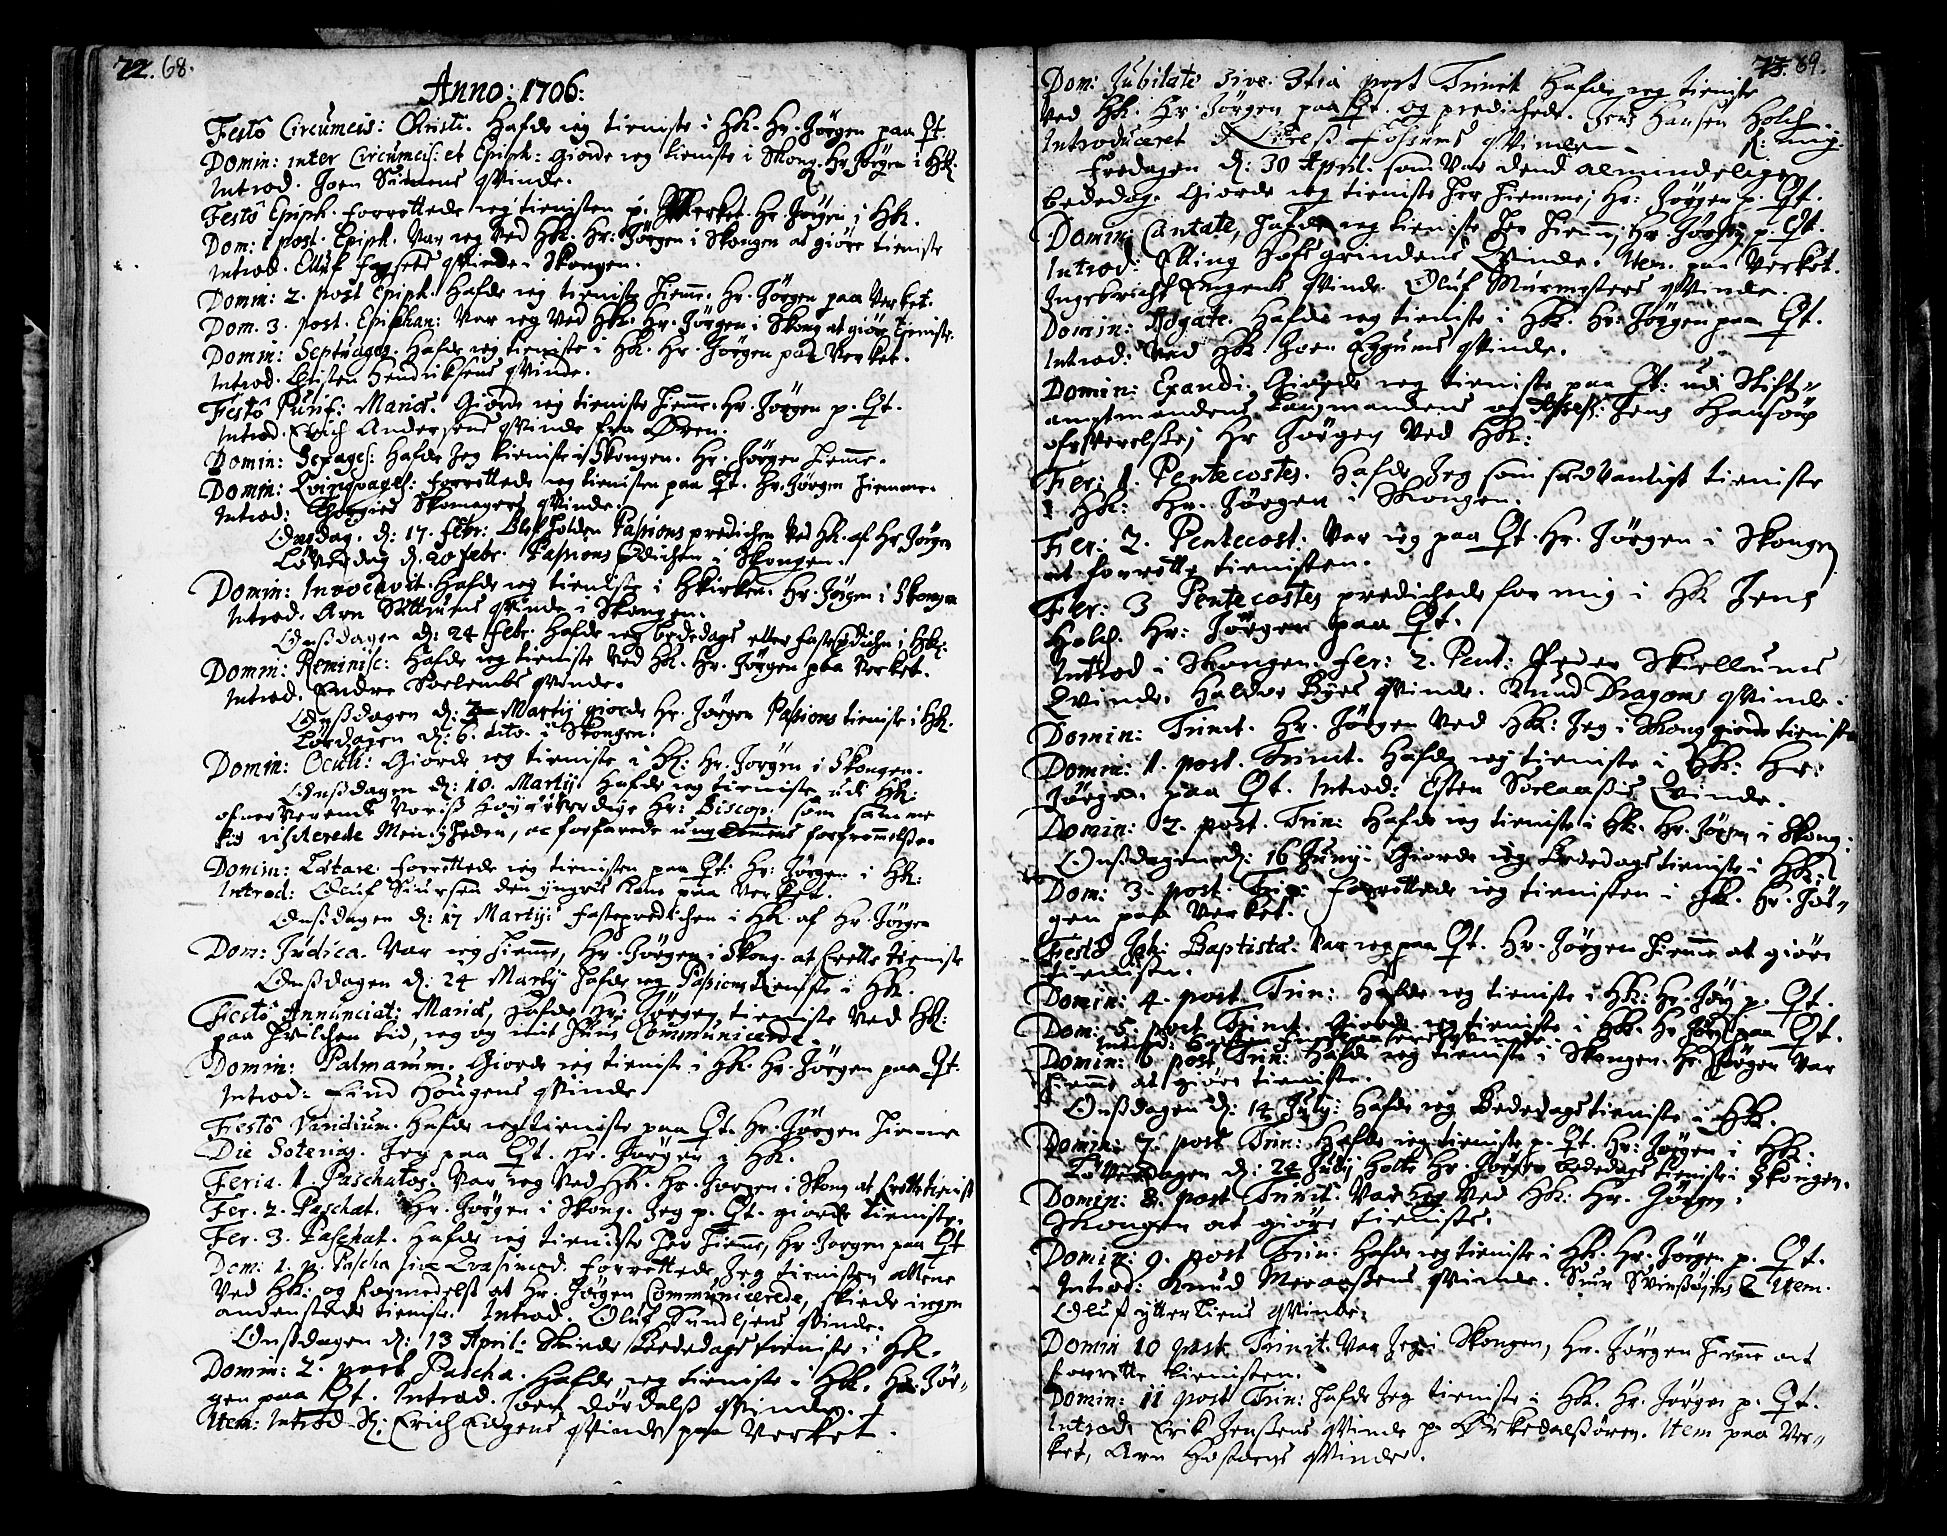 72. 68.
Anno: 1706:
Festô Circumcis: Christi. Hafde ieg tieniste i Hk. Hr. Jörgen paa Qt.
Domin: inter Circumcis: et Epiph: Giorde ieg tieniste i Skong. Hr Jörgen i Hk.
Introd. Joen Sumens qvinde.
Festô Epiph. forrettede ieg tienisten p. Verket. Hr. Jörgen i Hk.
Dom: 1 post. Epiph. Var ieg ved Hk. Hr: Jörgen i Skongen at giöre tieniste
Introd. Elluf fagsets qvinde i Skongen.
Domin: 2. post Epiph. Hafde ieg tieniste hieme. Hr. Jörgen paa Verket.
Dom. 3. post. Epiphan: Var ieg ved Hk. Hr. Jörgen i Skong at giöre tieniste.
Domin: Septuages. Hafde ieg tieniste i Hk. Hr. Jörgen paa Verket.
Introd. Christen Hendriksens qvinde.
Festô Purif: Mariæ. Giorde ieg tieniste hieme. Hr. Jörgen p. Qt.
Introd. Erich Andersens qvinde fra Ören.
Domin: Sexages: Hafde Jeg tieniste i Skongen. Hr. Jörgen hieme.
Domin: Qvinqvages: forrettede ieg tienisten paa Qt. Hr. Jörgen hiemme.
Introd: Skomagers qvinde.
Onsdag. d: 17. febr: Blef holden Passions predichen ved Hk. af Hr Jörgen
Löverdag d. 20 febr. Passions Pdichen i Skongen.
Domin: Invocavit. Hafde ieg tieniste i Hkirken. Hr. Jörgen i Skongen
Introd. Arn Sættrums qvinde i Skongen.
Onsdagen d: 24 febr. Hafde ieg bededags eller fastepdichn i Hk:
Domin: Reminisc: Hafde ieg tieniste ved Hk. Hr. Jörgen paa Verket.
Introd. Endre Soelembs qvinde.
Onsdagen d: 3 Martij giorde Hr. Jörgen Passions tieniste i Hk.
Lördagen d: 6. dito. i Skongen.
Domin: Oculi: Giorde ieg tieniste i Hk: Hr. Jörgen i Skongen.
Onsdagen d: 10. Martij. Hafde ieg tieniste udi Hk:
ofververende Voris Höyærverdige Hr: Biscop, som samme
tid visiterede Menigheden, oc forfarede ungdommens forfremmelse.
Domin: Lætare. forrettede ieg tienisten paa Qt: Hr: Jörgen i Hk:
Introd: Oluf Siursen den yngris kone paa Verket.
Onsdagen d: 17 Martij: fastepredichen i Hk. af Hr. Jörgen
Dom: Judica. Var ieg hieme, Hr. Jörgen i Skong. at forrette tieniste
Onsdagen d: 24 Martij hafde ieg Passions tieniste i Hk.
Festô Annunciat: Mariæ, Hafde Hr: Jörgen tieniste ved Hk:
paa hvilchen tid, ieg og mit huus Communicerede.
Domin: Palmarum. Giorde ieg tieniste i Hk. Hr. Jörgen paa Qt.
Introd: Lind Hougens qvinde.
Festô Viridium. Hafde ieg tieniste paa Qt. Hr. Jörgen hieme
Die Soterias. Jeg paa Qt. Hr. Jörgen i Hk.
Feria. 1. Paschatos. Var ieg ved Hk. Hr. Jorgen i Skong at forrette tieniste
Fer. 2. Paschat. Hr. Jörgen i Skong. Jeg p. Qt. giorde tieniste.
Fer. 3. Paschat. Hafde ieg tieniste her hieme, Hr Jorgen paa Qt
Dom: 1. p. Pascha sive Qvasimod. forrettede Jeg tienisten allene
ved Hk: og formedelst at Hr. Jörgen Communicerede, skiede ingen
andensteds tieniste. Introd. Oluf qvinde.
Onsdagen d: 13 April: Skinde Bededags tieniste i Hk.
Domin: 2. post Pascha. Hafde ieg tieniste i Hk. Hr. Jör-
gen paa Qt. Introd. Joen Dördals qvinde.
Item: Introd. Erich Engens qvinde paa Verket.
73. 89.
Dom: Jubilate sive. 3tia post Trinit Hafde ieg tieniste
ved Hk. Hr. Jörgen paa Qt. og predichede. Jens Hansen Holch
Introduceret fossums qvinde
Fredagen d: 30 April. som var dend almindelige
bededag. Giorde ieg tieniste her hiemme, Hr: Jörgen p. Qt.
Domin: Cantate, Hafde ieg tieniste her hieme, Hr Jörgen p. Qt.
Introd: Elling Hofsgrindens Qvinde. Item. paa Verket.
Ingebricht Engens qvinde. Oluf Murmesters qvinde.
Domin: Rogate. Hafde ieg tieniste i Hk. Hr: Jörgen paa Qt.
Introd: ved Hk. Joen Eggums qvinde.
Domin: Exaudi: Giorde ieg tieniste paa Qt: udi Stift-
amptmandens Laugmandens oc Assess: Jens Hansøns
ofververelse, Hr Jörgen ved Hk:
Fer: 1. Pentecostes. Hafde Jeg som sædvanligt tieniste
i Hk: Hr. Jörgen i Skongen.
Fer: 2. Pentecost: Var ieg paa Qt. Hr. Jörgen i Skongen
at forrette tienisten.
Fer: 3 Pentecostes predichede for mig i Hk Jens
Holch. Hr: Jörgen paa Qt.
Introd i Skongen. fer: 2. Pent: Peder Skiellums
Qvinde. Haldor Byes qvinde. Knud Dragons qvinde.
Domin: Trinit. Hr. Jörgen ved Hk: Jeg i Skong giorde tieniste
Domin: 1. post. Trinit. Hafde ieg tieniste i Hk: Hr:
Jörgen. paa Qt. Introd: Esten Soelaasis Qvinde.
Domin: 2. post. Trin: Hafde ieg tieniste i Hk. Hr. Jörgen i Skong:
Onsdagen d: 16 Junij. Giorde ieg Bededags tieniste i Hk:
Dom: 3. post. Trin: forrettede ieg tienisten i Hk. Hr. Jör-
gen paa Verket.
Festô Joh: Baptistæ: Var ieg paa Qt. Hr. Jörgen hieme at giöre
tieniste.
Domin: 4. post. Trin: Hafde ieg tieniste i Hk: Hr. Jörg p. Qt.
Dom: 5. post Trinit. Giorde ieg tieniste i Hk. Hr Jörg paa Qt.
Domin: 6 post Trin: Hafde ieg tieniste i Skongen. Hr Jörgen var
hieme at giöre tieniste.
Onsdagen d: 14 July: Hafde ieg Bededagstieniste i Hk.
Domin: 7. post Trin: Hafde ieg tieniste p. Qt. Hr: Jörgen i Hk:
Löverdagen d: 24 Julij holte Hr. Jörgen bededags tieniste i Skongen.
Domin: 8. post Trinit. Var Jeg ved Hk: Hr. Jörgen i
Skongen at giöre tieniste.
Domin: 9. post Trin: Hafde ieg tieniste i Hk. Hr. Jörgen p. Qt.
Introd: Knud Meraasens qvinde. Siur Svinsøyens Q Item.
Oluf ytterliens qvinde.
Domin 10 post Trinit. Var Jeg i Skongen, Hr. Jörgen hieme at
forrette tienisten.
Domin: 11 post Trin: hafde Jeg tieniste i Hk. Hr. Jörgen p. Qt.
Introd: Erik Jensens qvinde p. Ørkedalsören. Item paa Ver-
ket, Arn qvinde.